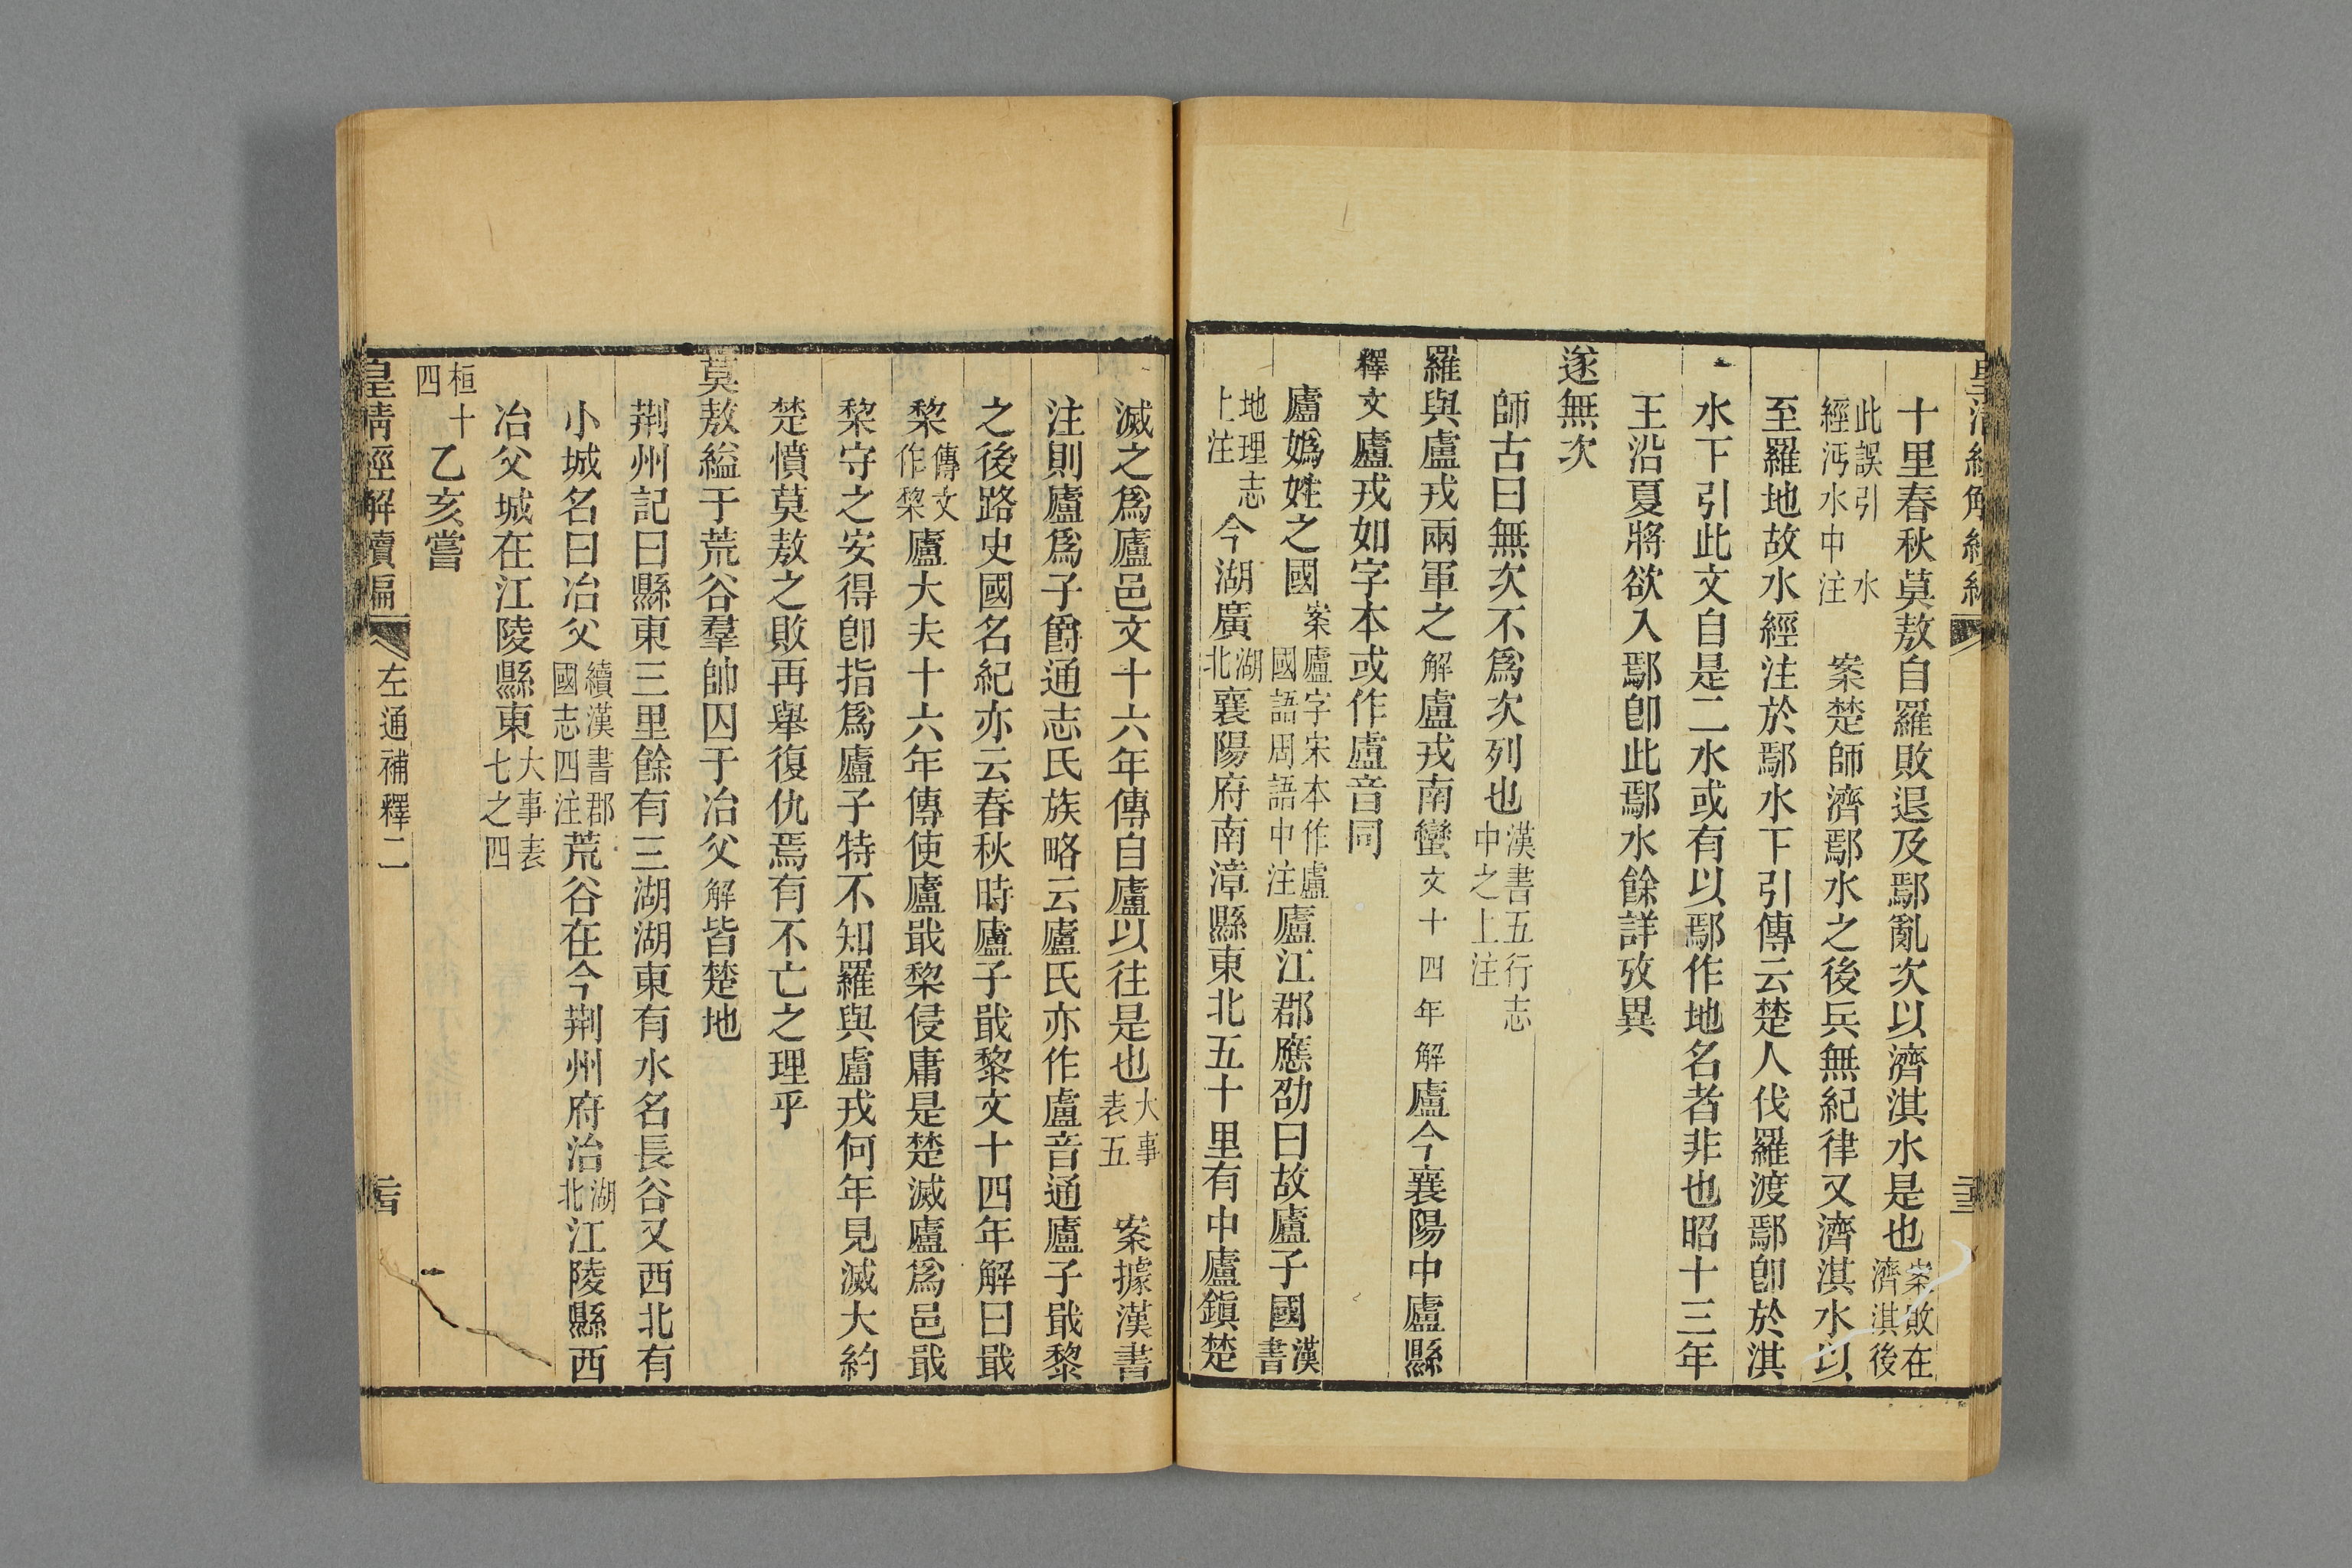 十里春秋莫敖自羅敗退及鄢亂次以濟淇水是也案敗在濟淇後
此誤引水經沔水中注 案楚師濟鄢水之後兵無紀律又濟淇水以
至羅地故水經注於鄢水下引傳云楚人伐羅渡鄢卽於淇
水下引此文自是二水或有以鄢作地名者非也昭十三年
王沿夏將欲入鄢卽此鄢水餘詳攷異
遂無次
師古曰無次不爲次列也漢書五行志中之上注
羅與盧戎兩軍之解盧戎南蠻文十四年解廬今襄陽中廬縣
釋文廬戎如字本或作盧音同
廬嬀姓之國案廬字宋本作盧國語周語中注廬江郡應劭曰故廬子國漢書
地理志上注今湖廣湖北襄陽府南漳縣東北五十里有中廬鎭楚
滅之爲廬邑文十六年傳自廬以往是也大事表五 案據漢書
注則廬爲子爵通志氏族略云廬氏亦作盧音通廬子戢黎
之後路史國名紀亦云春秋時廬子戢黎文十四年解曰戢
黎傳文作棃廬大夫十六年傳使廬戢棃侵庸是楚滅廬爲邑戢
棃守之安得卽指爲廬子特不知羅與盧戎何年見滅大約
楚憤莫敖之敗再舉復仇焉有不亡之理乎
莫敖縊于荒谷羣帥囚于冶父解皆楚地
荆州記曰縣東三里餘有三湖湖東有水名長谷又西北有
小城名曰冶父續漢書郡國志四注荒谷在今荆州府治湖北江陵縣西
冶父城在江陵縣東大事表七之四
桓十四乙亥嘗
皇清經解續編 左通補釋二